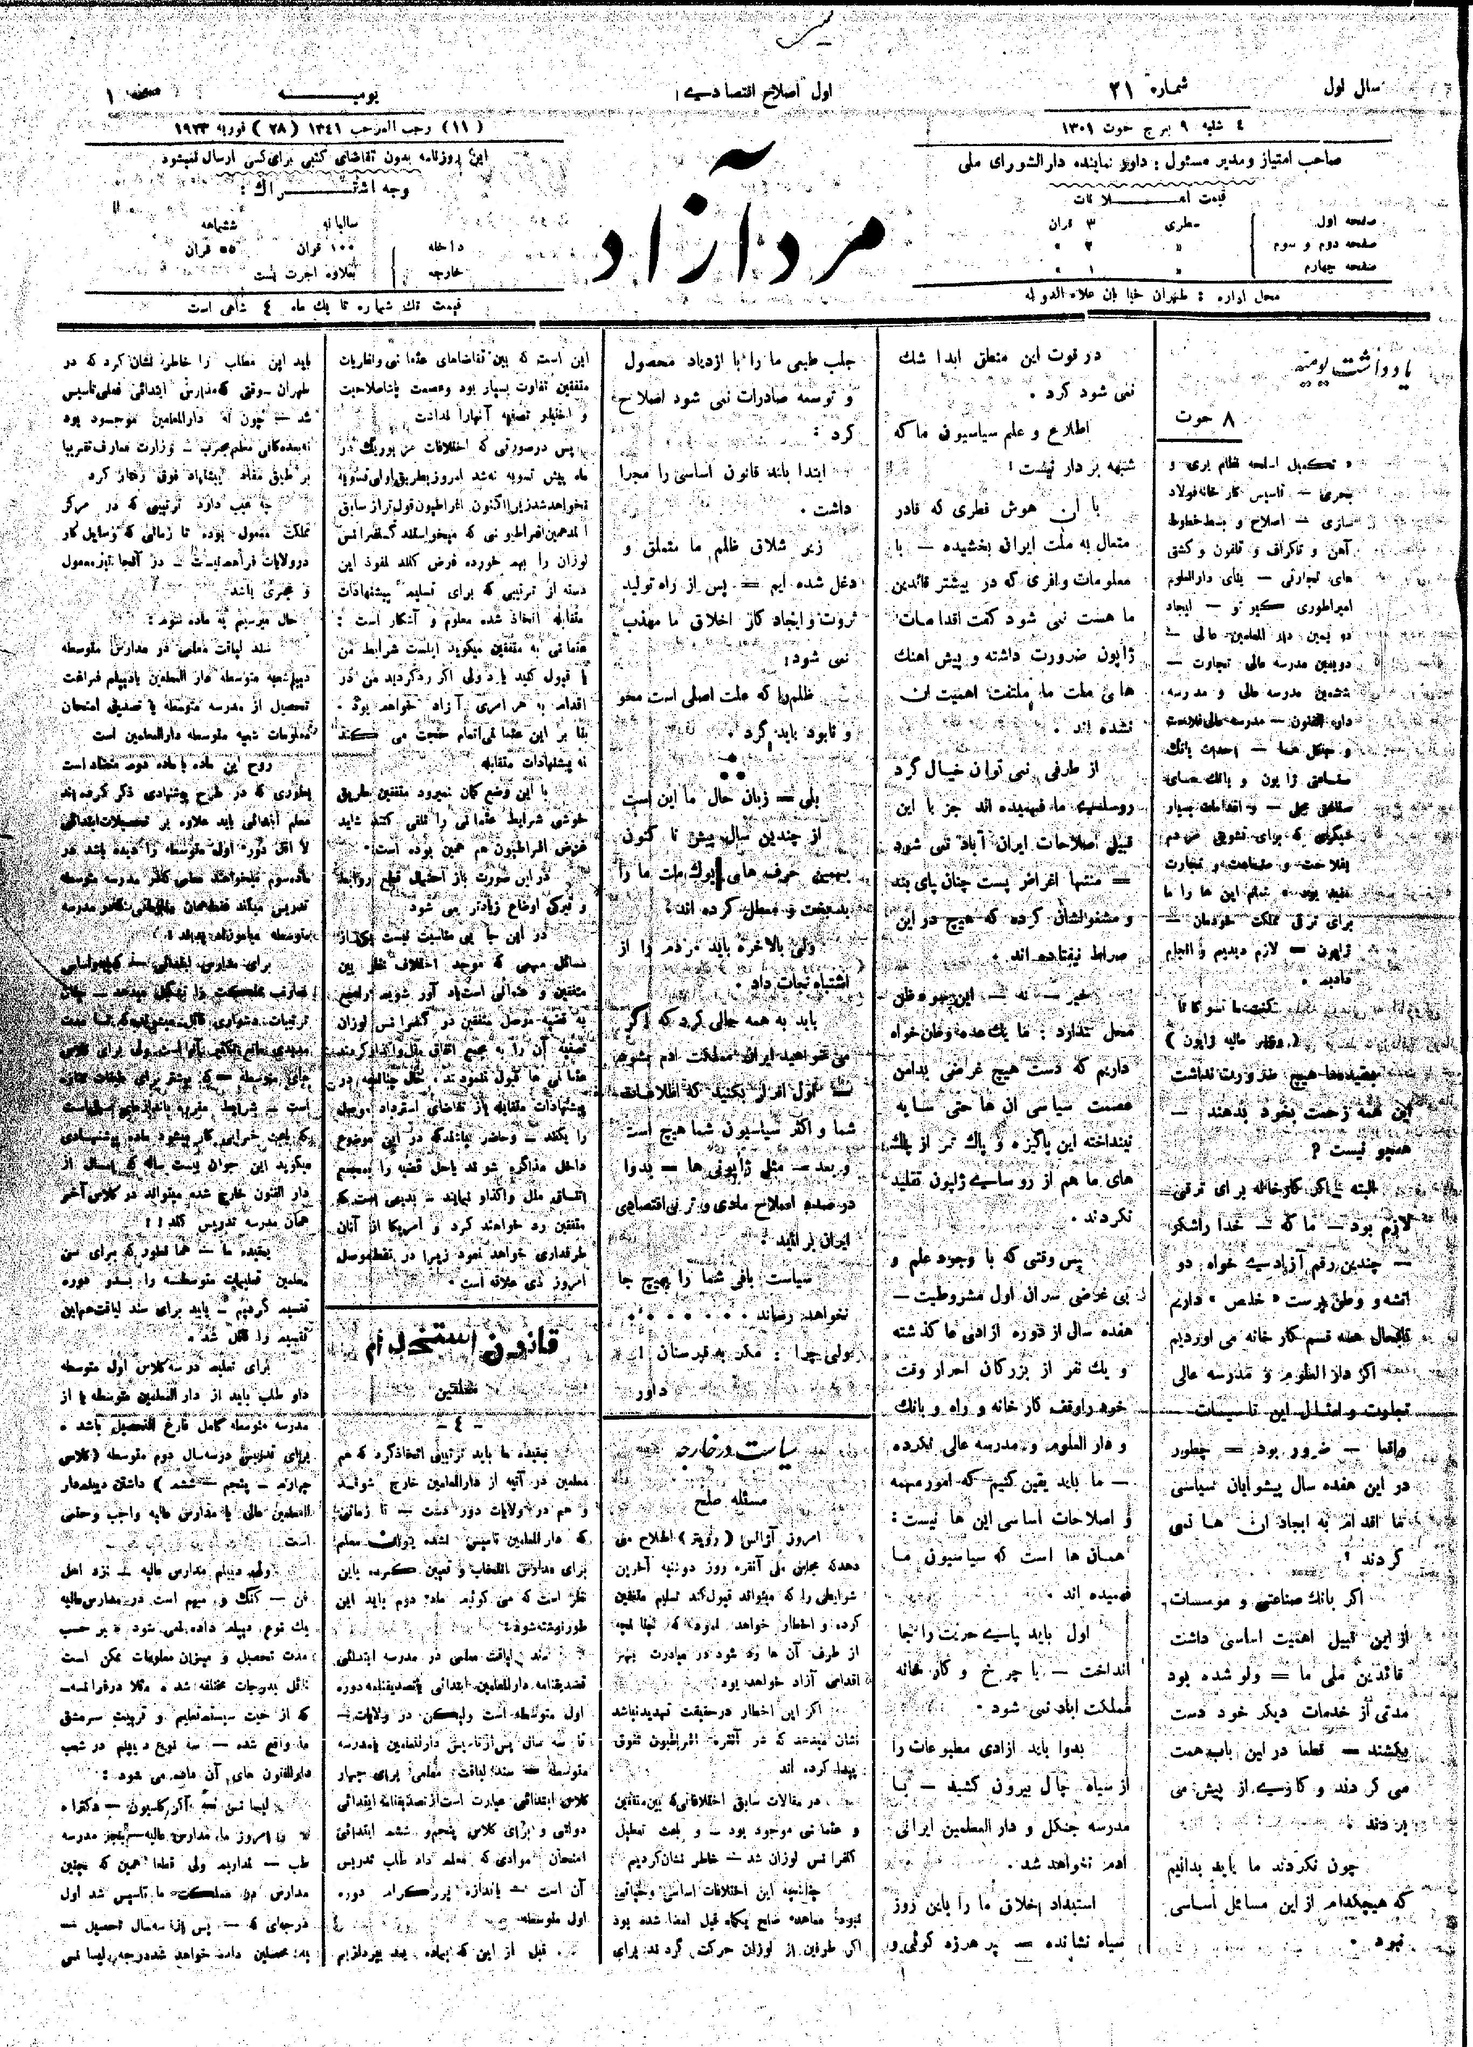 سال اول
شماره ۲۱
اول اصلاح اقتصادی!
یومیه
صفحه ۱
٤ شنبه ۹ برج حوت ۱۳۰۱
(۱۱) رجب المرجب ۱۳٤۱ (۲۸) فوریه ۱۹۲۳
صاحب امتیاز و مدیر مسئول : داور نماینده دارالشورای ملی
قیمت اعلانات
صفحه اول سطری ۳ قران
صفحه دوم و سوم » ۲ »
صفحه چهارم » ۱ »
محل اداره : طهران خیابان علاء الدوله
مرد آزاد
این روزنامه بدون تقاضای کتبی برای کسی ارسال نمیشود
وجه اشتراك :
سالیانه ششماهه
داخله ۱۰۰ قران ۵۵ قران
خارجه بعلاوه اجرت پست
قیمت تك شماره تا یك ماه ٤ شاهی است
یادداشت یومیه
۸ حوت
« تکمیل اسلحه نظام بری و
بحری — تاسیس کارخانه فولاد
سازی — اصلاح و بسط خطوط
آهن و تلگراف و تلفون و کشتی
های تجارتی — بنای دارالعلوم
امپراطوری کیوتو — ایجاد
دویمین دار المعلمین عالی —
دویمین مدرسه عالی تجارت —
ششمین مدرسه عالی و مدرسه
دار الفنون — مدرسه عالی فلاحت
و جنگل ها — احداث بانك
صنعتی ژاپون و بانك های
صنعتی محلی — و اقدامات بسیار
دیگری که برای تشویق مردم
بفلاحت و صناعت و تجارت
مفید بود » تمام این ها را ما
برای ترقی مملکت خودمان —
ژاپون — لازم دیدیم و انجام
دادیم .
(وزیر مالیه ژاپون)
بعقیده ما هیچ ضرورت نداشت
این همه زحمت بخود بدهند —
همچو نیست ?
البته — اگر کارخانه برای ترقی
لازم بود — ما که — خدا را شکر
— چندین رقم آزادی خواه دو
آتشه و وطن پرست « خلص » داریم
تابحال همه قسم کار خانه می آوردیم
اگر دار العلوم و مدرسه عالی
تجارت و امثال این تاسیسات —
واقعا — ضرور بود — چطور
در این هفده سال پیشوایان سیاسی
ما اقدام به ایجاد آن ها نمی
کردند ?
اگر بانك صناعتی و موسسات
از این قبیل اهمیت اساسی داشت
قائدین ملی ما — ولو شده بود
مدتی از خدمات دیگر خود دست
بکشند — قطعا در این باب همت
می کردند و کاری از پیش می
بردند .
چون نکردند ما باید بدانیم
که هیچکدام از این مسائل اساسی
نبود .
در قوت این منطق ابدا شك
نمی شود کرد .
اطلاع و علم سیاسیون ما که
شبهه بردار نیست !
با آن هوش فطری که قادر
متعال به ملت ایران بخشیده — با
معلومات وافری که در بیشتر قائدین
ما هست نمی شود گفت اقدامات
ژاپون ضرورت داشته و پیش آهنك
های ملت ما ملتفت اهمیت آن
نشده اند .
از طرفی نمی توان خیال کرد
روسای ما فهمیده اند جز با این
قبیل اصلاحات ایران آباد نمی شود
— منتها اغراض پست چنان پای بند
و مشغولشان کرده که هیچ در این
صراط نیفتاده اند .
خیر — نه — این سوء ظن
محل ندارد : ما یك عده وطن خواه
داریم که دست هیچ غرضی بدامن
عصمت سیاسی آن ها حتی سایه
نینداخته این پاکیزه و پاك تر از پاك
های ما هم از روسای ژاپون تقلید
نکردند .
پس وقتی که با وجود علم و
بی غرضی سران اول مشروطیت —
هفده سال از دوره آزادی ما گذشته
و یك نفر از بزرگان احرار وقت
خود را وقف کار خانه و راه و بانك
و دار العلوم و مدرسه عالی نکرده
— ما باید یقین کنیم که امور مهمه
و اصلاحات اساسی این ها نیست :
همان ها است که سیاسیون ما
فهمیده اند .
اول باید پاس حریت را نجا
انداخت — با چرخ و کار خانه
مملکت آباد نمی شود .
بدوا باید آزادی مطبوعات را
از سیاه چال بیرون کشید — با
مدرسه جنگل و دار المعلمین ایرانی
آدم نخواهد شد .
استبداد اخلاق ما را باین روز
سیاه نشانده — پر هرزه گوئی و
جلب طبعی ما را با ازدیاد محصول
و توسعه صادرات نمی شود اصلاح
کرد :
ابتدا باید قانون اساسی را مجرا
داشت .
زیر شلاق ظلم ما متملق و
دغل شده ایم — پس از راه تولید
ثروت و ایجاد کار اخلاق ما مهذب
نمی شود :
ظلم را که علت اصلی است محو
و نابود باید کرد .
بلی — زبان حال ما این است
از چندین سال پیش تا کنون
بهمین حرف های پوك ملت ما را
بدبخت و معطل کرده اند .
ولی بالاخره باید مردم را از
اشتباه نجات داد .
باید به همه حالی کرد که اگر
می خواهید ایران مملکت آدم بشود
— اول اقرار بکنید که اطلاعات
شما و اکثر سیاسیون شما هیچ است
و بعد — مثل ژاپونی ها — بدوا
در صدد اصلاح مادی و ترقی اقتصادی
ایران برائید .
سیاست بافی شما را بهیچ جا
نخواهد رساند . . . . . . .
ولی چرا : مگر به قبرستان !
داور
سیاست در خارجه
مسئله صلح
امروز آژانس (رویتر) اطلاع می
دهد که مجلس ملی آنقره روز دوشنبه آخرین
شرایطی را که میتواند قبول کند تسلیم متفقین
کرده و اخطار خواهد نمود که چنانچه
از طرف آن ها رد شود در مبادرت بهر
اقدامی آزاد خواهد بود .
اگر این اخطار در حقیقت تهدید نباشد
نشان میدهد که در آنقره افراطیون تفوق
پیدا کرده اند
در مقالات سابق اختلافاتی که بین متفقین
و عثمانی موجود بود — و باعث تعطیل
کنفرانس لوزان شد — خاطر نشان کردیم
چنانچه این اختلافات اساسی و حیاتی
نبود معاهده صلح یکماه قبل امضا شده بود
اگر طرفین از لوزان حرکت کردند برای
این است که بین تقاضاهای عثمانی و نظریات
متفقین تفاوت بسیار بود و عصمت پاشا صلاحیت
و اختیار تصفیه آنها را نداشت
پس در صورتی که اختلافات مزبور یك
ماه پیش تسویه نشد امروز بطریق اولی تسویه
نخواهد شد زیرا اکنون افراطیون قوی تر از سابق
لوزان را بهم خورده فرض کنند نفوذ این
دسته از ترتیبی که برای تسلیم پیشنهادات
متقابله اتخاذ شده معلوم و آشکار است :
عثمانی به متفقین میگوید اینست شرایط من
یا قبول کنید یا رد ولی اگر رد کردید من در
اقدام به هر امری آزاد خواهم بود .
بنا بر این عثمانی اتمام حجت می کند
نه پیشنهادات متقابله
با این وضع گمان نمیرود متفقین بطریق
خوشی شرایط عثمانی را تلقی کنند شاید
غرض افراطیون هم همین بوده است .
در این صورت باز احتمال قطع روابط
و تیرگی اوضاع زیادتر می شود
در این جا بی مناسبت نیست یکی از
مسائل مهمی که موجد اختلاف نظر بین
متفقین و عثمانی است یاد آور شویم راجع
به قضیه موصل متفقین در کنفرانس لوزان
تصفیه آن را به مجمع اتفاق ملل واگذار کردند
عثمانی ها قبول ننمودند . حال چنانچه در
پیشنهادات متقابله باز تقاضای استرداد موصل
را بکنند — و حاضر نباشند که در این موضوع
داخل مذاکره شوند یا حل قضیه را بمجمع
اتفاق ملل واگذار نمایند — بدیهی است که
متفقین رد خواهند کرد و امریکا از آنان
طرفداری خواهد نمود زیرا در نفط موصل
امروز ذی علاقه است .
قانون استخدام
معلمین
- ٤ -
بعقیده ما باید ترتیبی اتخاذ کرد که هم
معلمین در آتیه از دارالمعلمین خارج شوند
و هم در ولایات دور دست — تا زمانی
که دار المعلمین تاسیس نشده بتوان معلم
برای مدارس انتخاب و تعیین کرد، باین
نظر است که می گوئیم ماده دوم باید این
طور نوشته شود :
سند لیاقت معلمی در مدرسه ابتدائی
تصدیقنامه دارالمعلمین ابتدائی یا تصدیقنامه دوره
اول متوسطه است ولیکن در ولایات —
تا سه سال پس از تاسیس دارالمعلمین یا مدرسه
متوسطه — سند لیاقت معلمی برای چهار
کلاس ابتدائی عبارت است از تصدیقنامه ابتدائی
دولتی و برای کلاس پنجم و ششم ابتدائی
امتحان موادی که معلم داو طلب تدریس
آن است — باندازه پروگرام دوره
اول متوسطه .
قبل از این که بماده بعد بپردازیم
باید این مطلب را خاطر نشان کرد که در
طهران وقتی که مدارس ابتدائی فعلی تاسیس
شد — چون نه دارالمعلمین موجود بود
نه بعده کافی معلم مجرب — وزارت معارف تقریبا
بر طبق مفاد پیشنهاد فوق رفتار کرد
چه عیب دارد ترتیبی که در مرکز
مملکت معمول بوده تا زمانی که وسایل کار
در ولایات فراهم نیست — در آنجا نیز معمول
و مجری باشد
حال میرسیم به ماده سوم :
سند لیاقت معلمی در مدارس متوسطه
دیپلم شعبه متوسطه دار المعلمین یا دیپلم فراغت
تحصیل از مدرسه متوسطه یا تصدیق امتحان
معلومات شعبه متوسطه دارالمعلمین است
روح این ماده با ماده دوم متضاد است
بطوری که در طرح پیشنهادی ذکر کرده اند
معلم ابتدائی باید علاوه بر تحصیلات ابتدائی
لا اقل دوره اول متوسطه را دیده باشد در
برای مدارس ابتدائی — که پایه اساسی
معارف مملکت را تشکیل میدهد — چنان
است — شرایط
میگوید این جوان بیست ساله که امسال از
دار الفنون خارج شده میتواند در کلاس آخر
همان مدرسه تدریس کند !!
بعقیده ما — همانطور که برای سن
معلمین تعلیمات متوسطه را بدو دوره
تقسیم کردیم — باید برای سند لیاقت هم این
تقسیم را قائل شد .
برای تعلیم در سه کلاس اول متوسطه
داو طلب باید از دار المعلمین متوسطه یا از
مدرسه متوسطه کامل فارغ التحصیل باشد .
برای تدریس در سه سال دوم متوسطه (کلاس
چهارم — پنجم — ششم) داشتن دیپلم دار
المعلمین عالی یا مدارس عالیه واجب و حتمی
است
ولی دیپلم مدارس عالیه — نزد اهل
فن — گنك و مبهم است در مدارس عالیه
یك نوع دیپلم داده نمی شود . بر حسب
مدت تحصیل و میزان معلومات ممکن است
نائل بدرجات مختلفه شد . مثلا در فرانسه —
که از حیث سیستم تعلیم و تربیت سرمشق
ما واقع شده — سه نوع دیپلم در شعب
دارالفنون های آن داده می شود :
لیسانس — آگرگاسیون — دکترا .
امروز ما مدارس عالیه — بجز مدرسه
طب — نداریم ولی قطعا همین که چنین
مدارس در مملکت ما تاسیس شد اول
درجه ای که — پس از سه سال تحصیل —
به محصلین داده خواهد شد درجه لیسانس